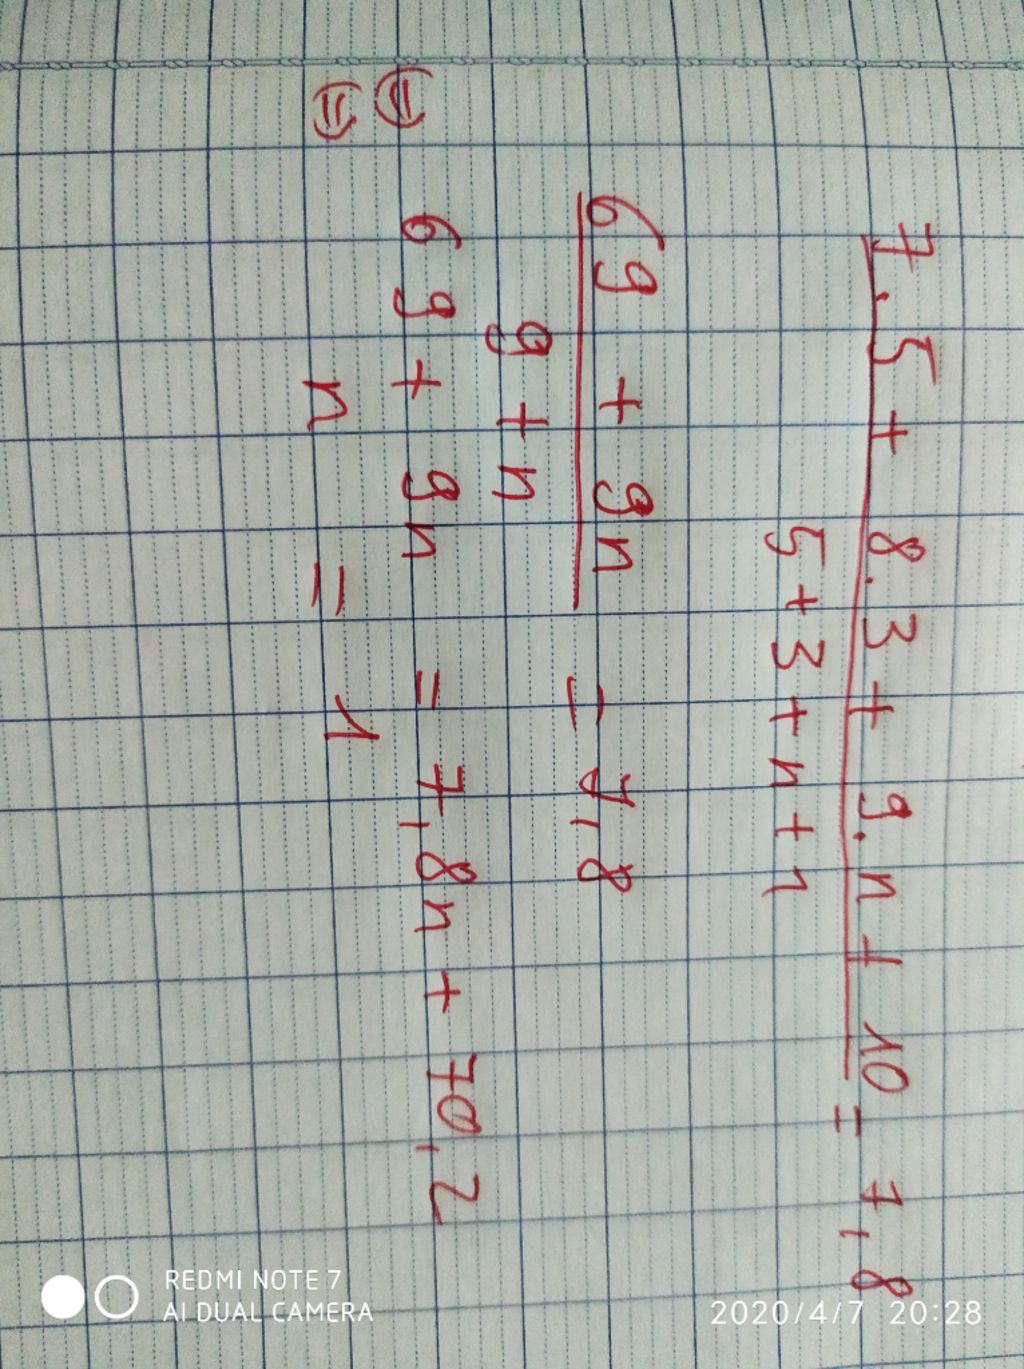 7.5 + 8.3 + 9.n + 10 = 7,8
5 + 3 + n + 1
69 + 9n = 7,8
9 + n
⇔ 69 + 9n = 7,8n + 70,2
⇔ n = 1
REDMI NOTE 7
AI DUAL CAMERA
2020/4/7 20:28